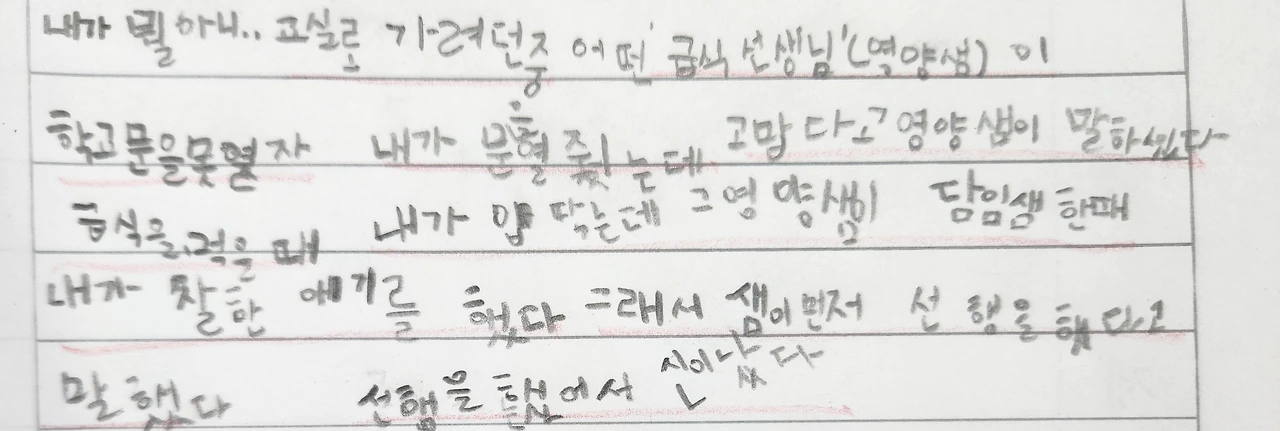 내가 뭘 아니.. 교실로 가려던중 어떤 급식 선생님(영양샘) 이
학고문을못열자 내가 문흘 열줬는데 고맙다고 영양샘이 말하셨다
급식을 먹을때 내가 입 닥는데 그영양샘이 담임샘한때
내가 착한 얘기를 했다 그래서 샘이먼저 선행을 했다고
말했다 선행을 해서 신이났다